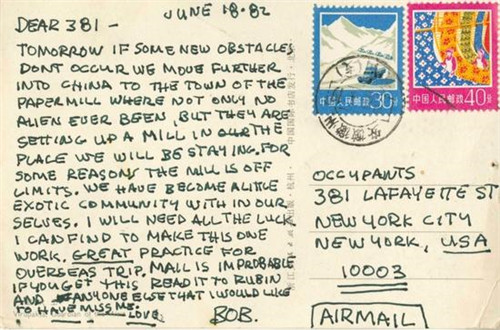 JUNE 18.82
DEAR 381 -
TOMORROW IF SOME NEW OBSTACLES
DONT OCCUR WE MOVE FURTHER
INTO CHINA TO THE TOWN OF THE
PAPERMILL WHERE NOT ONLY NO
ALIEN EVER BEEN, BUT THEY ARE
SETTING UP A MILL IN OUR THE
PLACE WE WILL BE STAYING. FOR
SOME REASON THE MILL IS OFF
LIMITS. WE HAVE BECOME A LITTLE
EXOTIC COMMUNITY WITH IN OUR
SELVES. I WILL NEED ALL THE LUCK
I CAN FIND TO MAKE THIS ONE
WORK. GREAT PRACTICE FOR
OVERSEAS TRIP. MAIL IS IMPROBABLE
IF YOU GET THIS READ IT TO RUBIN
AND ANYONE ELSE THAT I WOULD LIKE
TO HAVE MISS ME.
LOVE
BOB.
中国人民邮政 30分
中国人民邮政 40分
OCCUPANTS
381 LAFAYETTE ST
NEW YORK CITY
NEW YORK, USA
10003
AIRMAIL